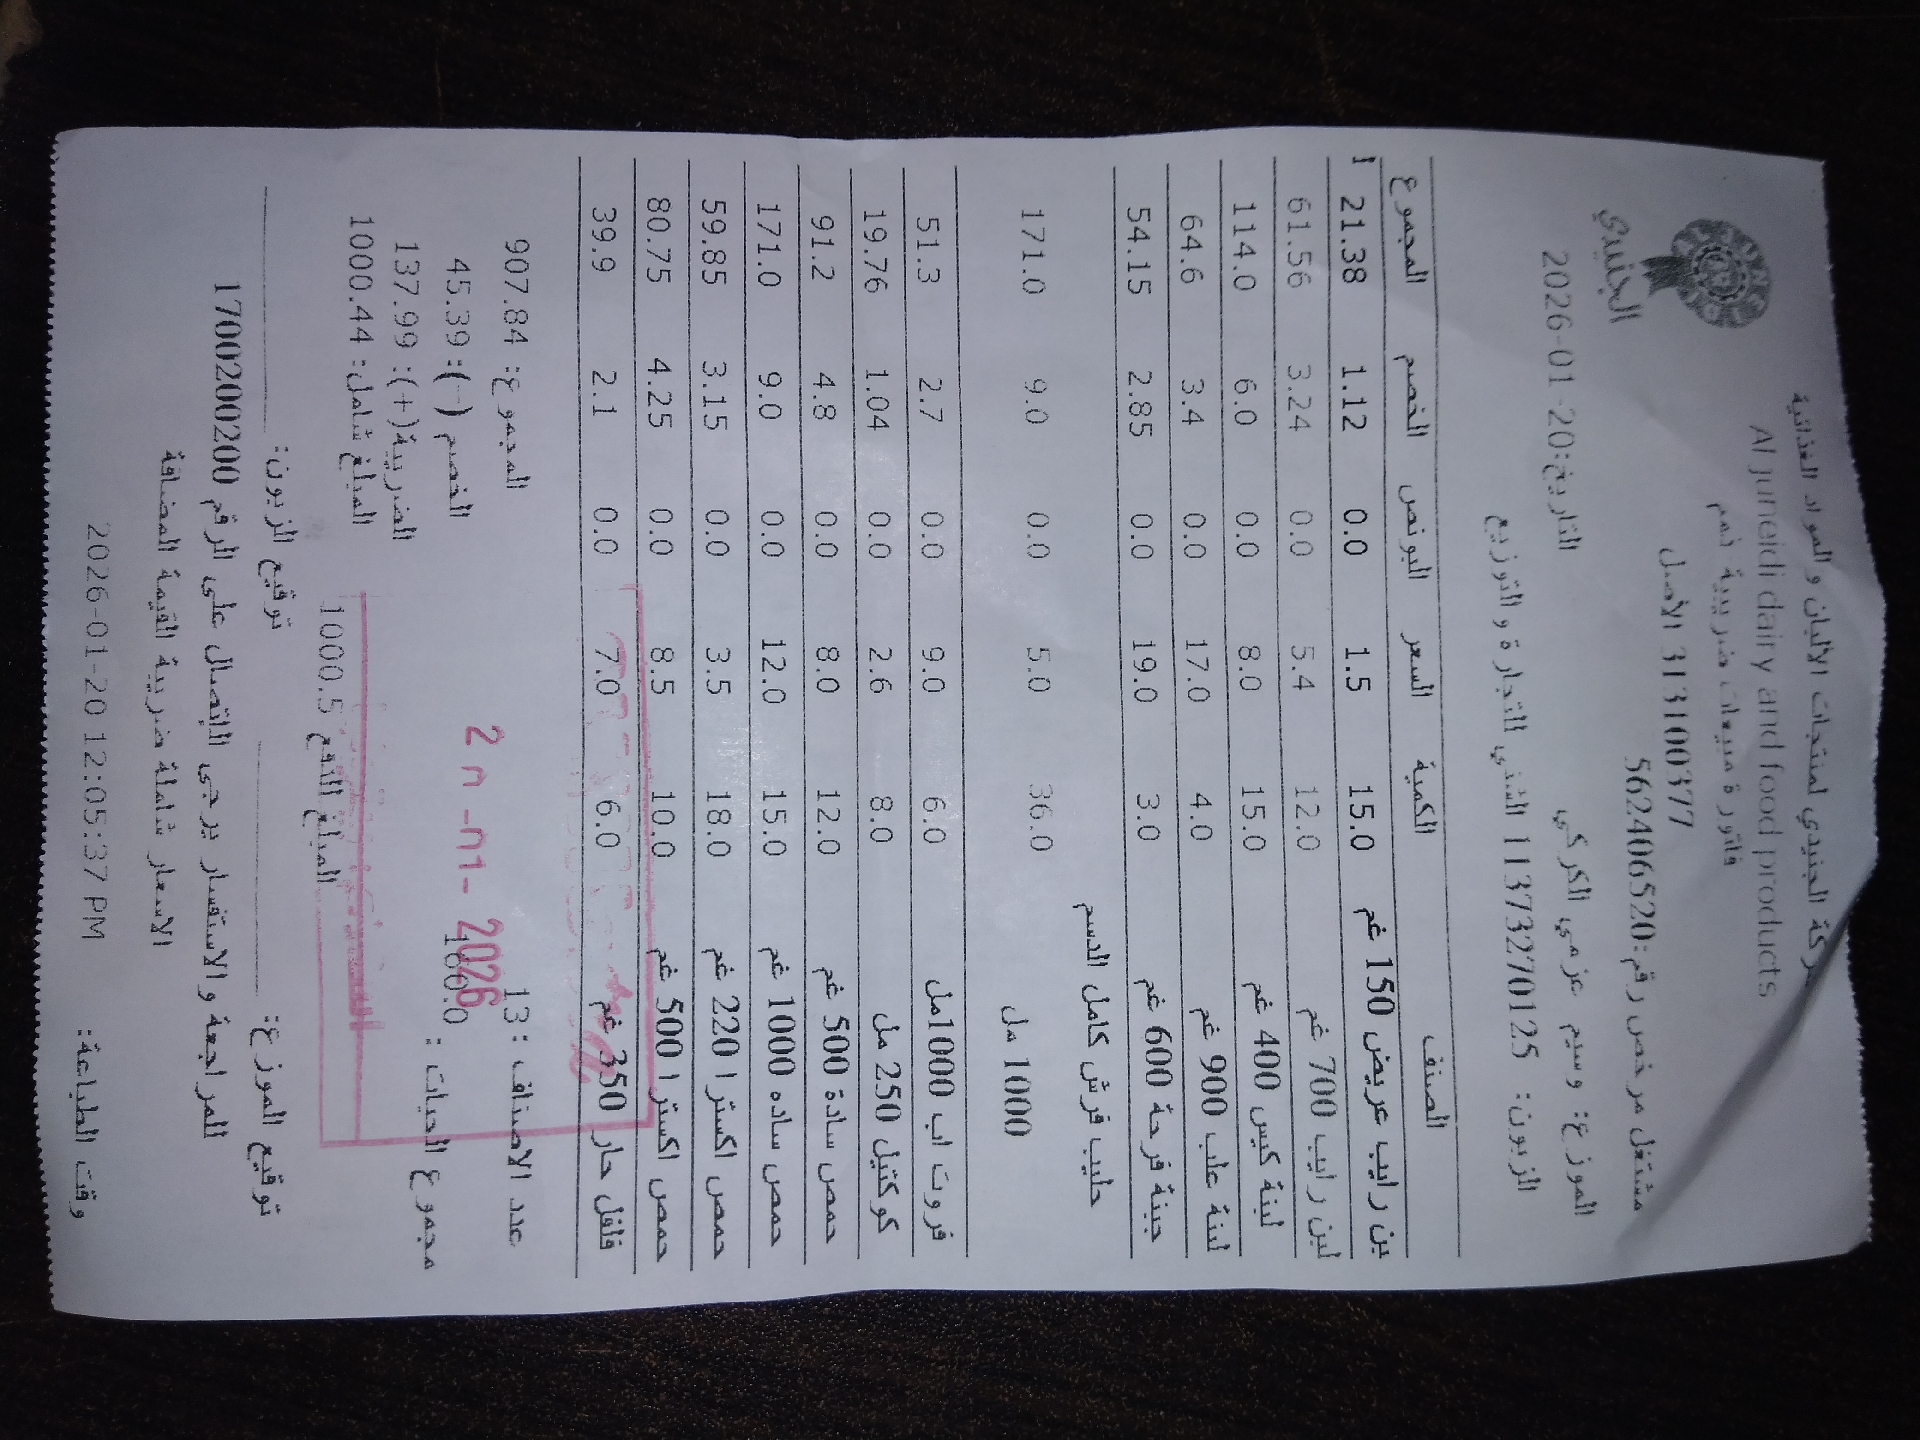 شركة الجنيدي لمنتجات الألبان و المواد الغذائية
Al juneidi dairy and food products
فاتورة مبيعات ضريبية ذمم
313100377 الأصل
مشتغل مرخص رقم:562406520
الجنيدي
التاريخ:20-01-2026
الموزع: وسيم عزمي الكركي
الزبون: 11373270125 الشني للتجارة و التوزيع
الصنف الكمية السعر البونص الخصم المجموع
بن رايب عريض 150 غم 15.0 1.5 0.0 1.12 21.38
لبن رايب 700 غم 12.0 5.4 0.0 3.24 61.56
لبنة كيس 400 غم 15.0 8.0 0.0 6.0 114.0
لبنة علب 900 غم 4.0 17.0 0.0 3.4 64.6
جبنة فرحة 600 غم 3.0 19.0 0.0 2.85 54.15
حليب فرش كامل الدسم
1000 مل 36.0 5.0 0.0 9.0 171.0
فروت اب 1000مل 6.0 9.0 0.0 2.7 51.3
كوكتيل 250 مل 8.0 2.6 0.0 1.04 19.76
حمص سادة 500 غم 12.0 8.0 0.0 4.8 91.2
حمص ساده 1000 غم 15.0 12.0 0.0 9.0 171.0
حمص اكسترا 220 غم 18.0 3.5 0.0 3.15 59.85
حمص اكسترا 500 غم 10.0 8.5 0.0 4.25 80.75
فلفل حار 350 غم 6.0 7.0 0.0 2.1 39.9
عدد الاصناف : 13 المجموع: 907.84
مجموع الحبات : 160.0 الخصم (-): 45.39
2026
الضريبة(+): 137.99
المبلغ شامل: 1000.44
المبلغ الدفع 1000.5
توقيع الموزع: توقيع الزبون:
للمراجعة و الاستفسار يرجى الاتصال على الرقم 1700200200
الاسعار شاملة ضريبة القيمة المضافة
وقت الطباعة: 2026-01-20 12:05:37 PM